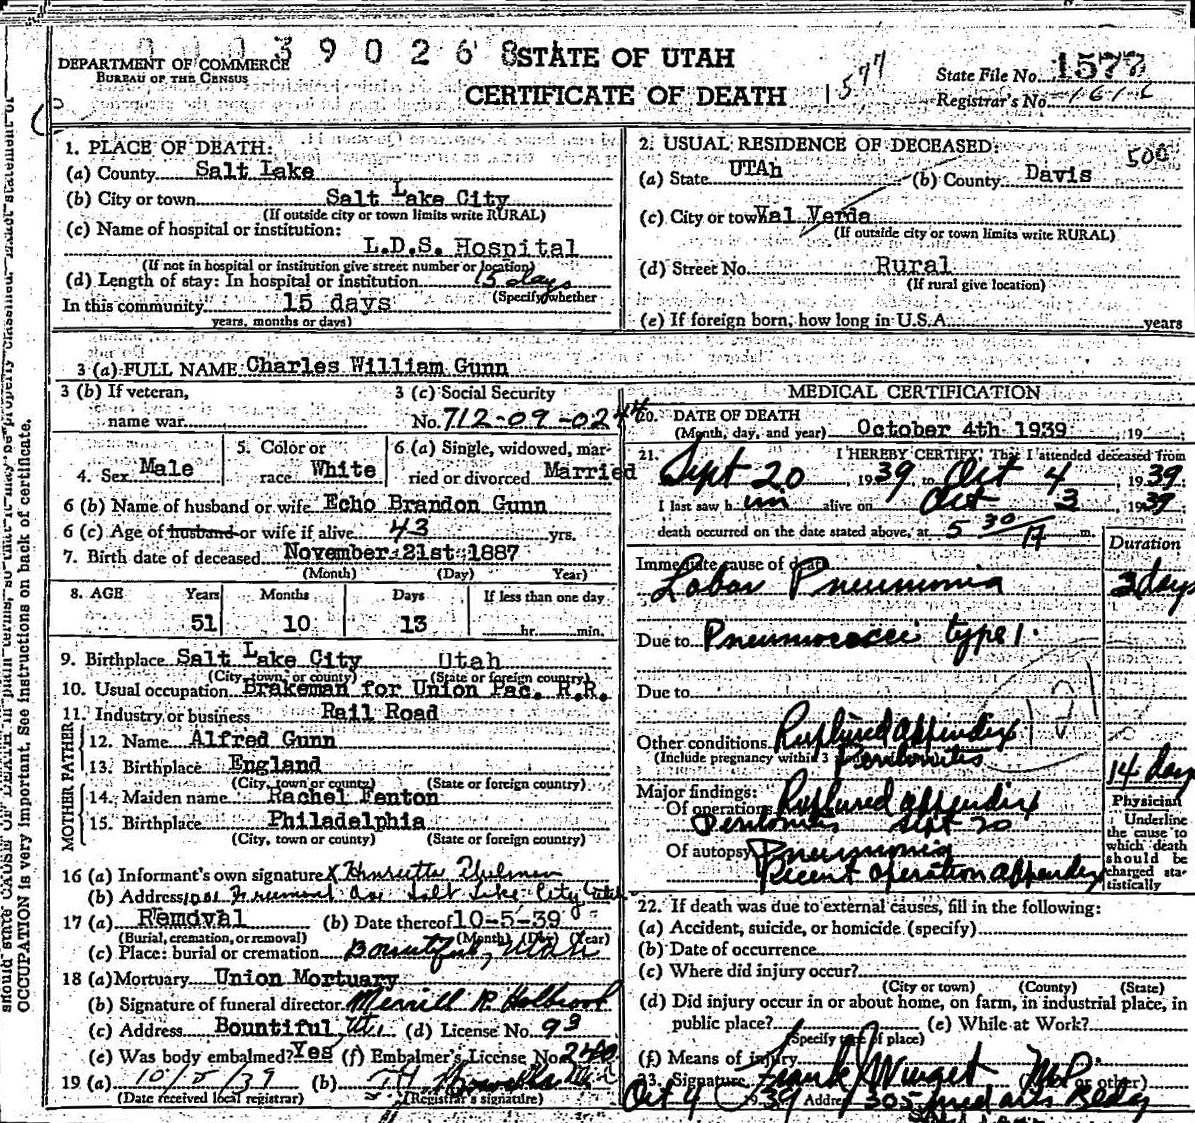 0 0 1 3 9 0 2 6 8 STATE OF UTAH
DEPARTMENT OF COMMERCE
BUREAU OF THE CENSUS
CERTIFICATE OF DEATH
1577
State File No. 1577
Registrar's No.
1. PLACE OF DEATH:
(a) County Salt Lake
(b) City or town Salt Lake City
(If outside city or town limits write RURAL)
(c) Name of hospital or institution:
L.D.S. Hospital
(If not in hospital or institution give street number or location)
(d) Length of stay: In hospital or institution 15 days
(Specify whether
In this community 15 days
years, months or days)
2. USUAL RESIDENCE OF DECEASED: 500
(a) State UTAh (b) County Davis
(c) City or town Val Verda
(If outside city or town limits write RURAL)
(d) Street No. Rural
(If rural give location)
(e) If foreign born, how long in U.S.A. years
3 (a) FULL NAME Charles William Gunn
3 (b) If veteran,
name war
3 (c) Social Security
No. 712-09-0244
4. Sex Male
5. Color or
race White
6 (a) Single, widowed, mar-
ried or divorced Married
6 (b) Name of husband or wife Echo Brandon Gunn
6 (c) Age of husband or wife if alive 43 yrs.
7. Birth date of deceased November 21st 1887
(Month) (Day) Year)
8. AGE Years Months Days If less than one day
51 10 13 hr. min.
9. Birthplace Salt Lake City Utah
(City, town, or county) (State or foreign country)
10. Usual occupation Brakeman for Union Pac. R.R.
11. Industry or business Rail Road
FATHER
12. Name Alfred Gunn
13. Birthplace England
(City, town or county) (State or foreign country)
MOTHER
14. Maiden name Rachel Fenton
15. Birthplace Philadelphia
(City, town, or county) (State or foreign country)
16 (a) Informant's own signature X Henrietta
(b) Address Fremont Ave Salt Lake City Utah
17 (a) Removal (b) Date thereof 10-5-39
(Burial, cremation, or removal) (Month) (Day) (Year)
(c) Place: burial or cremation Bountiful, Utah
18 (a) Mortuary Union Mortuary
(b) Signature of funeral director Merrill R. Holbrook
(c) Address Bountiful Ut. (d) License No. 93
(e) Was body embalmed? Yes (f) Embalmer's License No. 240
19 (a) 10/5/39 (b)
(Date received local registrar) (Registrar's signature)
MEDICAL CERTIFICATION
20. DATE OF DEATH
(Month, day, and year) October 4th 1939, 19 ;
21. I HEREBY CERTIFY, That I attended deceased from
Sept 20, 1939, to Oct 4 1939;
I last saw h im alive on Oct 3, 1939,
death occurred on the date stated above, at 5 30/A m.
Duration
Immediate cause of death
Lobar Pneumonia 3 days
Due to Pneumococci type 1.
Due to
Other conditions Ruptured appendix
(Include pregnancy within 3 Peritonitis 14 days
Major findings:
Of operations Ruptured appendix
Peritonitis Sept 20
Of autopsy Pneumonia
Recent operation appendix
Physician
Underline
the cause to
which death
should be
charged sta-
tistically
22. If death was due to external causes, fill in the following:
(a) Accident, suicide, or homicide (specify)
(b) Date of occurrence
(c) Where did injury occur?
(City or town) (County) (State)
(d) Did injury occur in or about home, on farm, in industrial place, in
public place? (e) While at Work?
(Specify type of place)
(f) Means of injury
23. Signature Frank J Winget M.D. (M.D. or other)
Oct 4 1939 Address 305 Med arts Bldg
should state CAUSE OF DEATH in plain terms, so that it may be properly classified. Exact statement of
OCCUPATION is very important. See instructions on back of certificate.